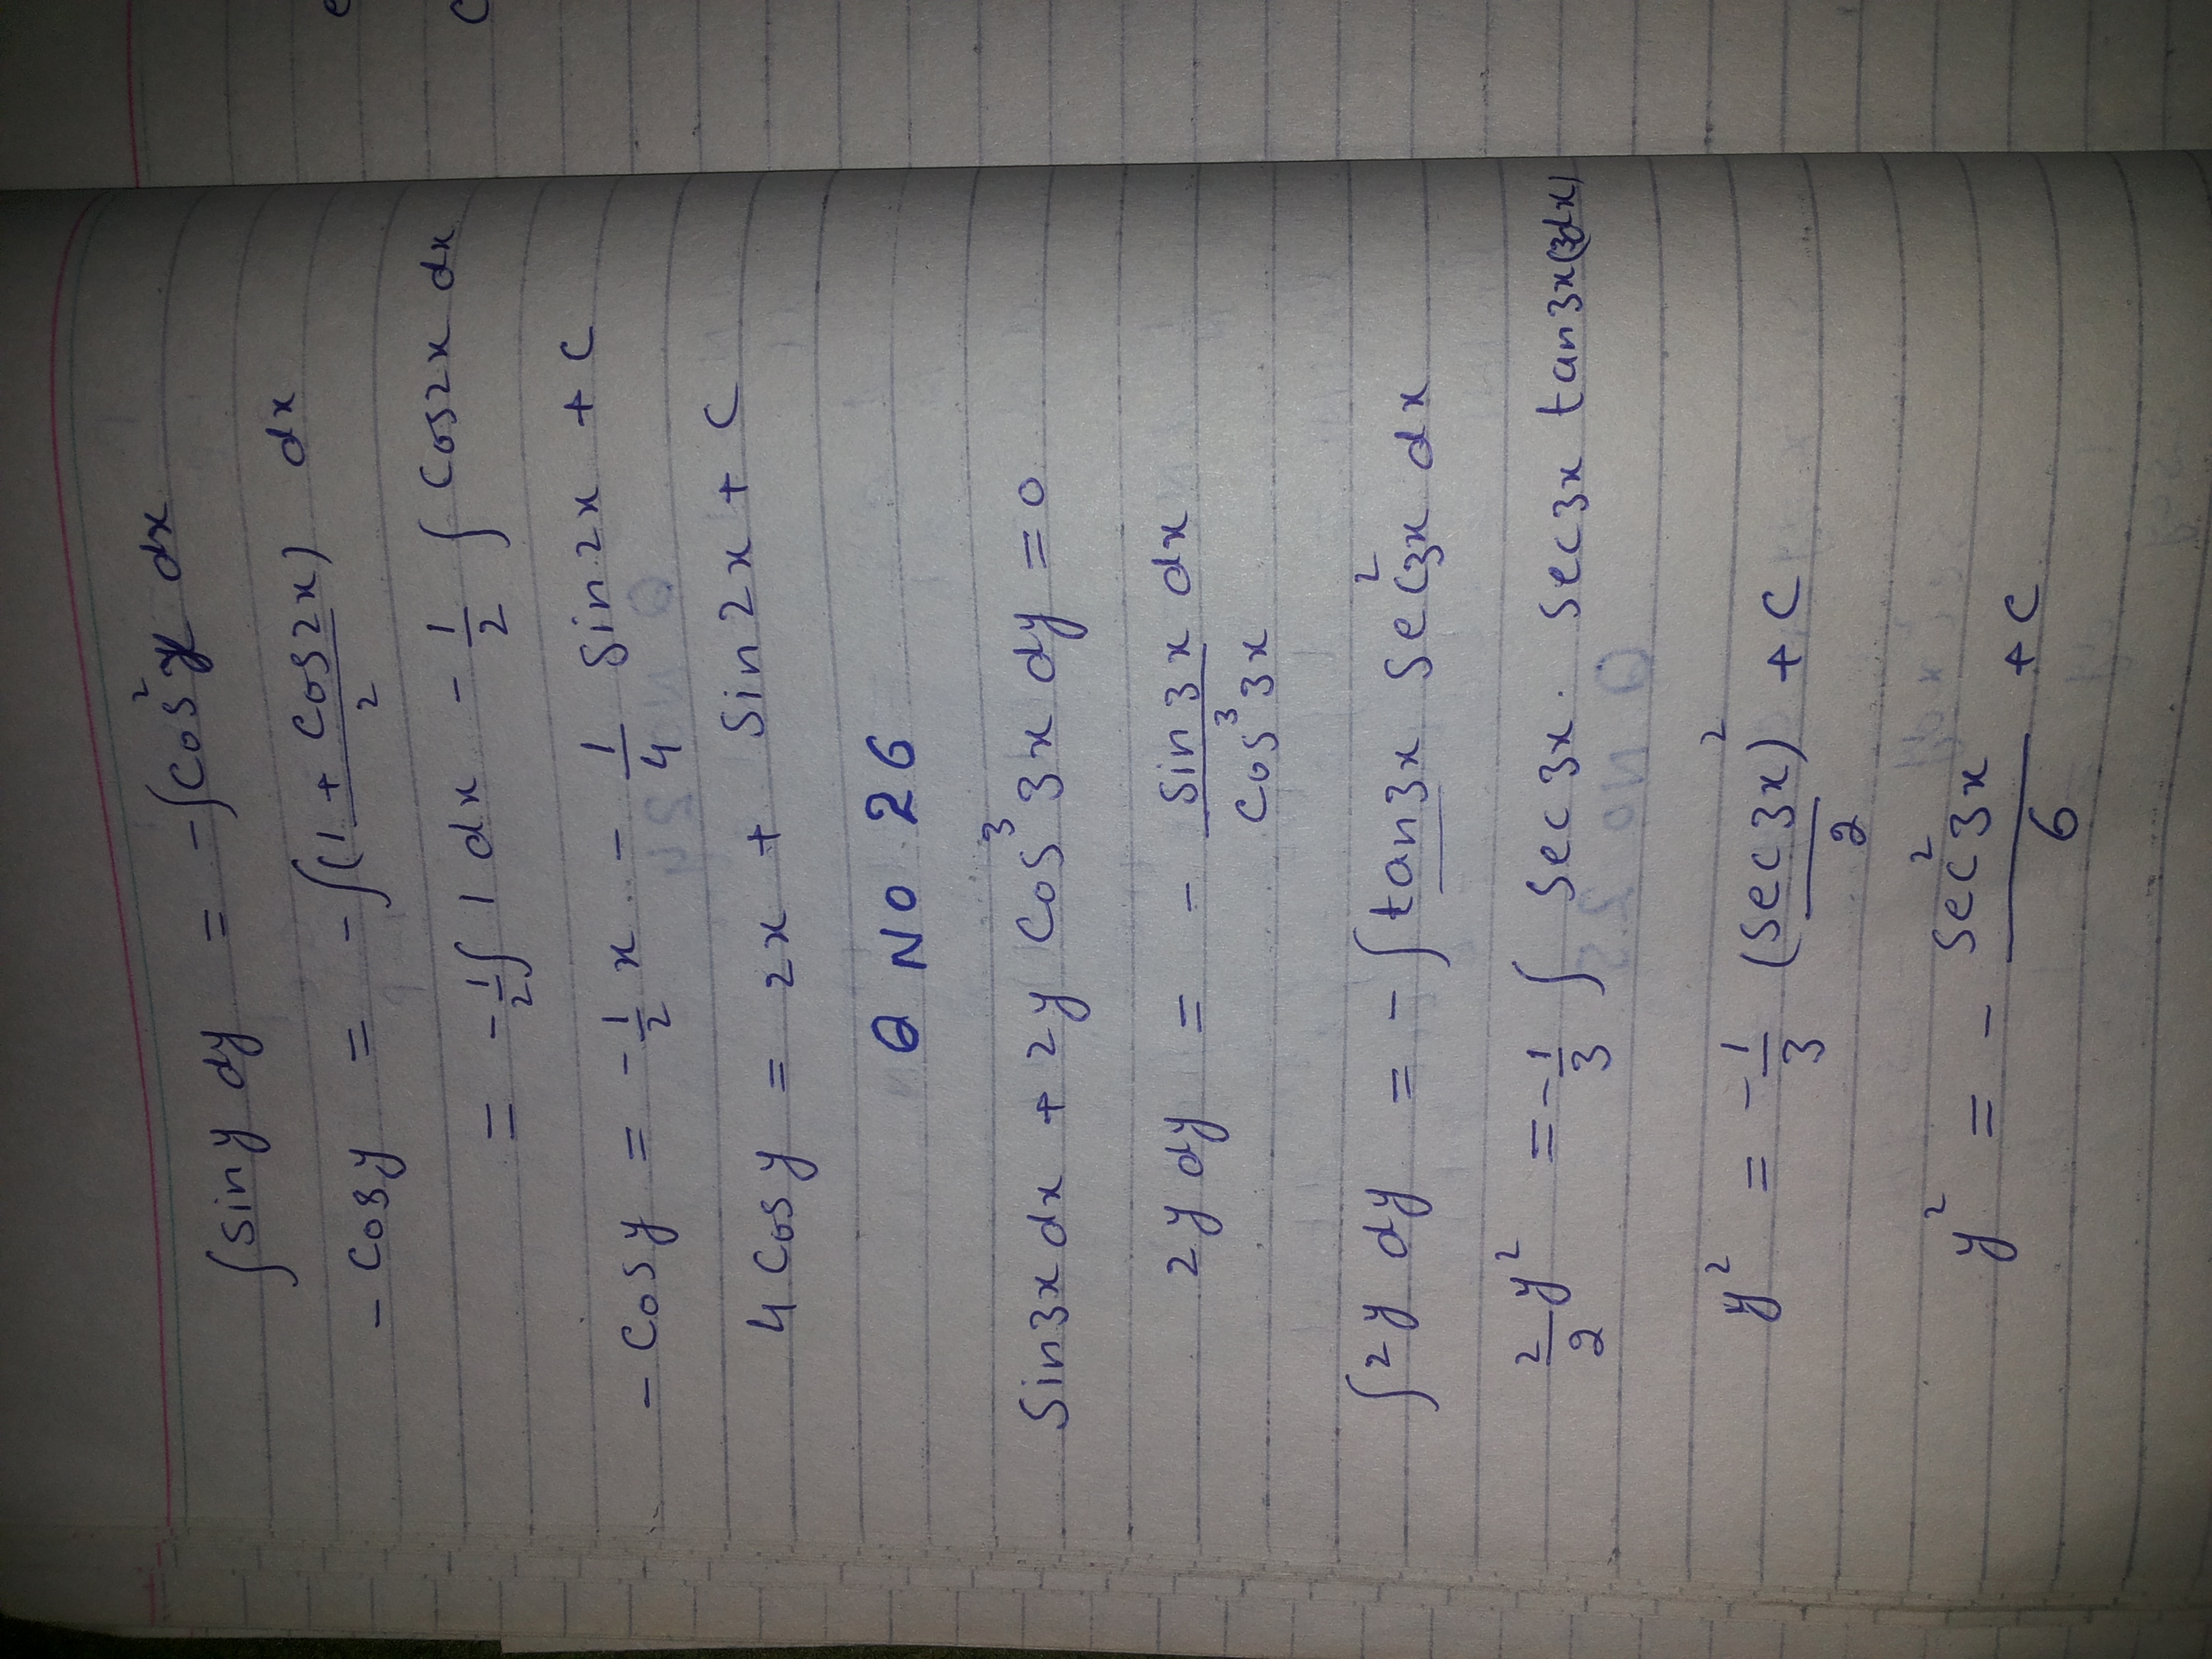 ∫ sin y dy = -∫ cos²x dx
- cos y = -∫ (1 + cos2x)/2 dx
= -1/2 ∫ 1 dx - 1/2 ∫ cos2x dx
- cos y = -1/2 x - 1/4 sin 2x + c
4 cos y = 2x + sin 2x + c
Q NO 26
sin3x dx + 2y cos³3x dy = 0
2y dy = - sin3x/cos³3x dx
∫ 2y dy = -∫ tan3x sec²3x dx
2/2 y² = -1/3 ∫ sec3x . sec3x tan3x(3dx)
y² = -1/3 (sec3x)²/2 + c
y² = - sec²3x/6 + c